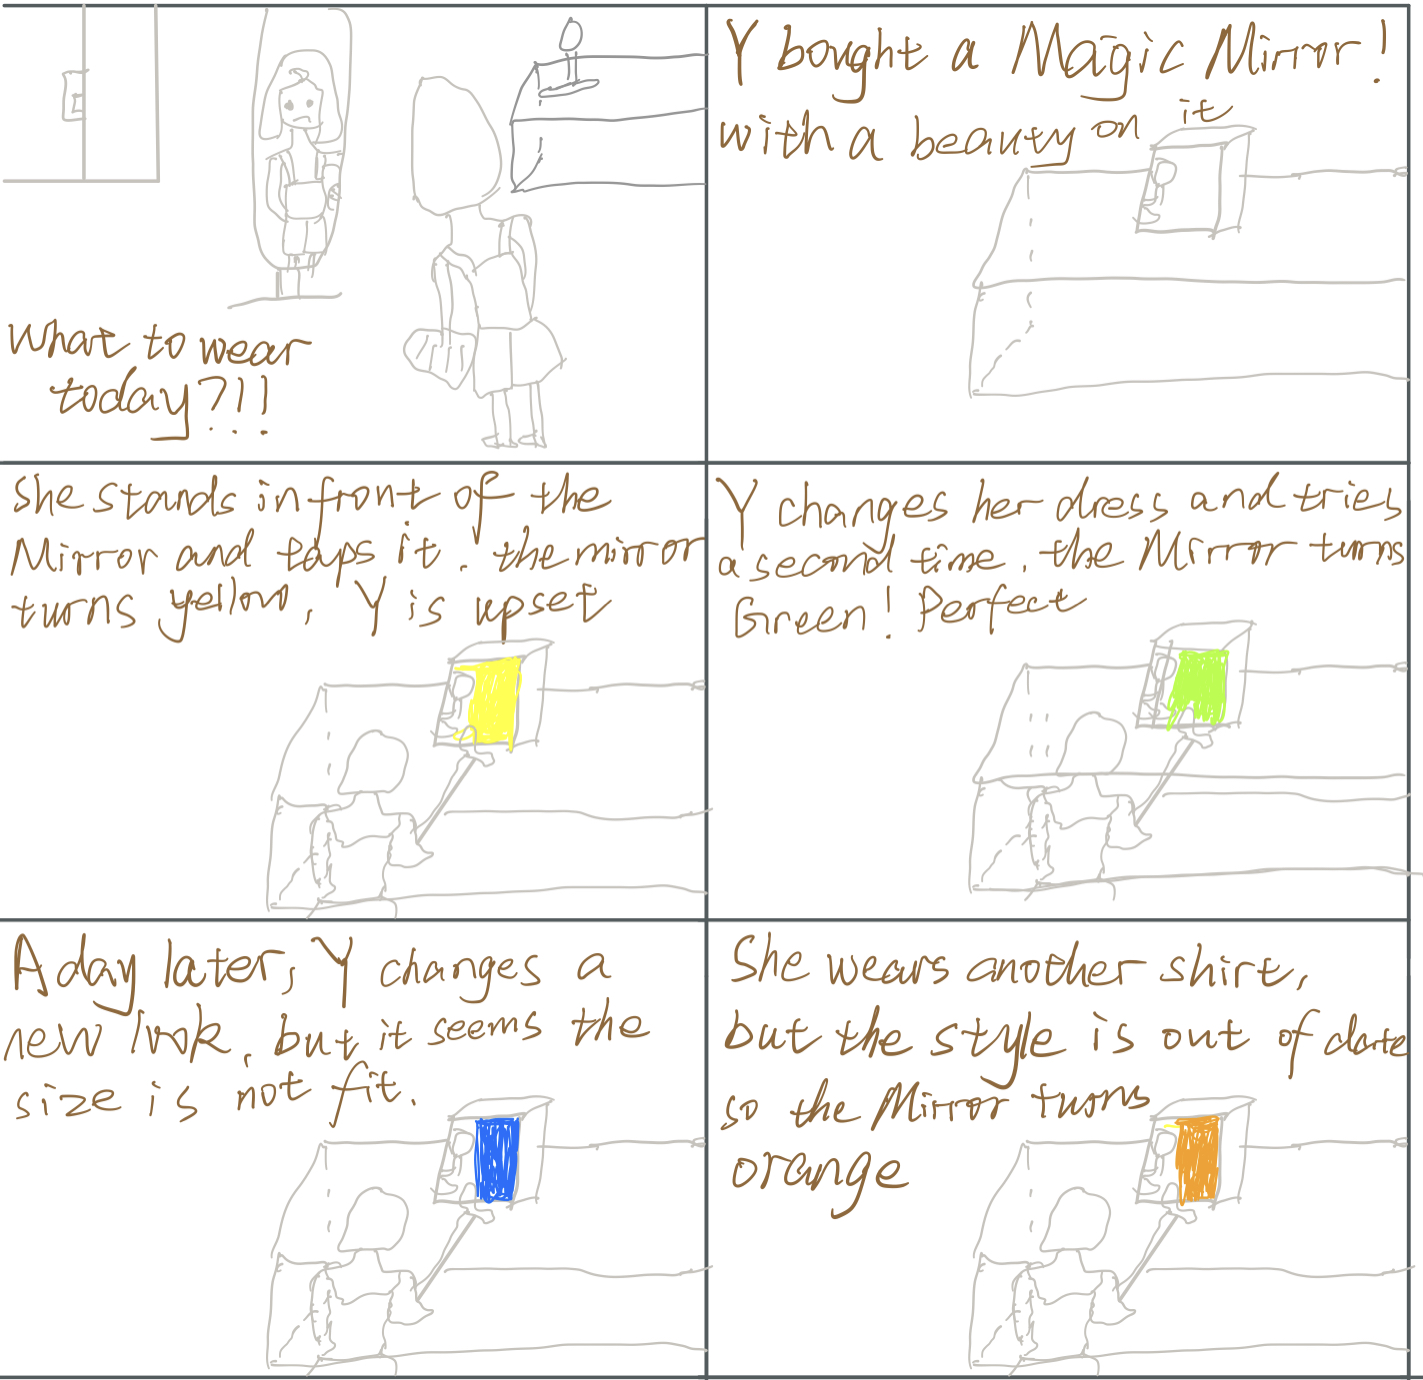 What to wear
today?!!
Y bought a Magic Mirror!
with a beauty on it
She stands in front of the
Mirror and taps it. the mirror
turns yellow, Y is upset
Y changes her dress and tries
a second time, the Mirror turns
Green! Perfect
A day later, Y changes a
new look, but it seems the
size is not fit.
She wears another shirt,
but the style is out of date
so the Mirror turns
orange